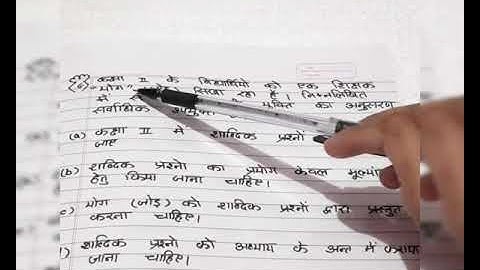 कक्षा II के विद्यार्थियो को एक शिक्षक
"योग" सिखा रहा है। निम्नलिखित
में से
सर्वाधिक युक्ति का अनुसरण
(a) कक्षा II में शाब्दिक प्रश्नों
जाए
(b) शाब्दिक प्रश्नो का प्रयोग केवल
हेतु किया जाना चाहिए।
c) योग (जोड़) को शाब्दिक प्रश्नों द्वारा प्रस्तुत
करना चाहिए।
) शाब्दिक प्रश्नों को अध्याय के अन्त में
जाना चाहिए।